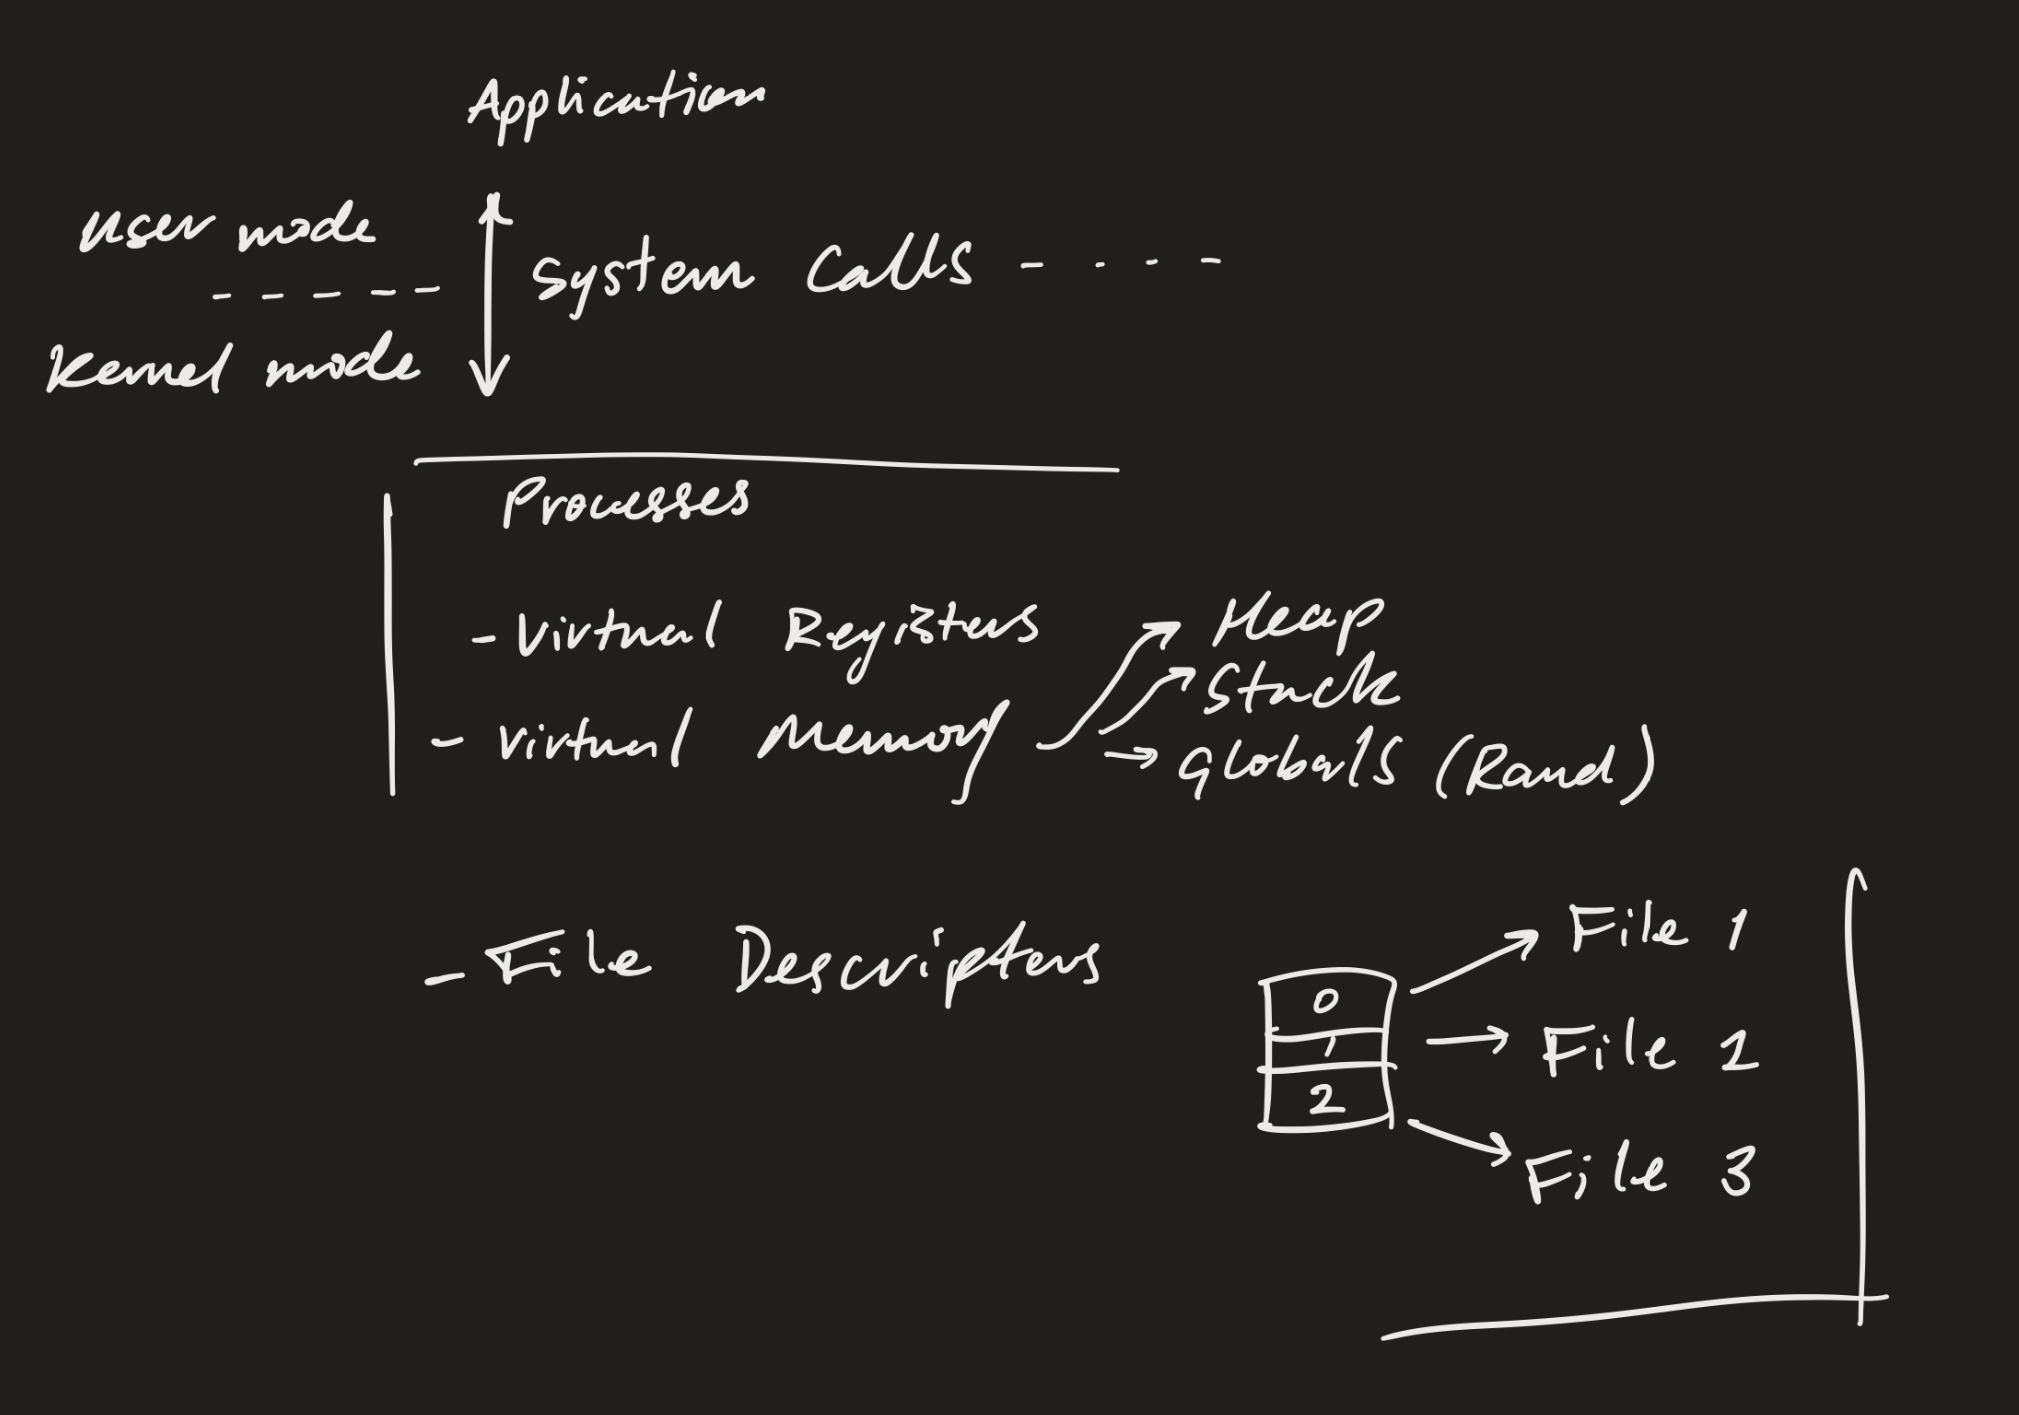 Application
User mode
System Calls
Kernel mode
Processes
- Virtual Registers
- Virtual Memory
Heap
Stack
Globals (Rand)
- File Descriptors
0
1
2
File 1
File 2
File 3